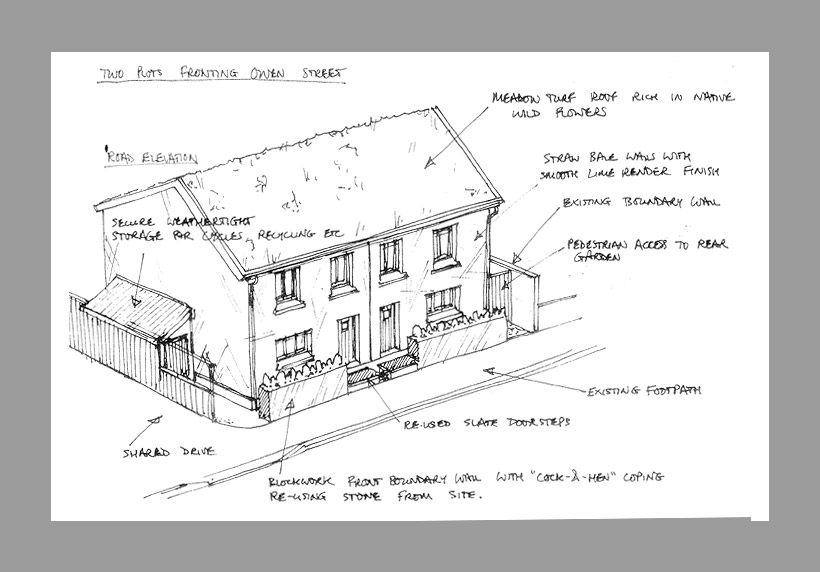 TWO PLOTS FRONTING OWEN STREET
MEADOW TURF ROOF RICH IN NATIVE
WILD FLOWERS
ROAD ELEVATION
STRAW BALE WALLS WITH
SMOOTH LIME RENDER FINISH
EXISTING BOUNDARY WALL
SECURE WEATHERTIGHT
STORAGE FOR CYCLES, RECYCLING ETC
PEDESTRIAN ACCESS TO REAR
GARDEN
EXISTING FOOTPATH
RE-USED SLATE DOORSTEPS
SHARED DRIVE
BLOCKWORK FRONT BOUNDARY WALL WITH "COCK-A-HEN" COPING
RE-USING STONE FROM SITE.